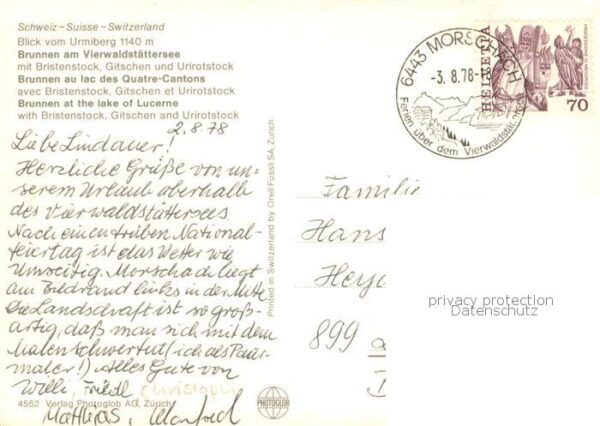 Schweiz – Suisse – Switzerland
Blick vom Urmiberg 1140 m
Brunnen am Vierwaldstättersee
mit Bristenstock, Gitschen und Urirotstock
Brunnen au lac des Quatre-Cantons
avec Bristenstock, Gitschen et Urirotstock
Brunnen at the lake of Lucerne
with Bristenstock, Gitschen and Urirotstock
2.8.78
Liebe Lindauer!
Herzliche Grüße von un-
serem Urlaub oberhalb
des Vierwaldstättersees.
Nach einem trüben National-
feiertag ist das Wetter wie
Morschach liegt
am Bildrand links in der Mitte.
Die Landschaft ist so groß-
artig, daß man sich mit dem
Malen schwertut (ich als Paar-
maler!) Alles Gute von
Willi, Friedl Christoph
Matthias, Manfred
4552 Verlag Photoglob AG, Zürich
PHOTOGLOB
Printed in Switzerland by Orell Füssli SA, Zurich
6443 MORSCHACH
-3.8.78-18
Ferien über dem Vierwaldstättersee
HELVETIA
70
Familie
Hans
899
privacy protection
Datenschutz